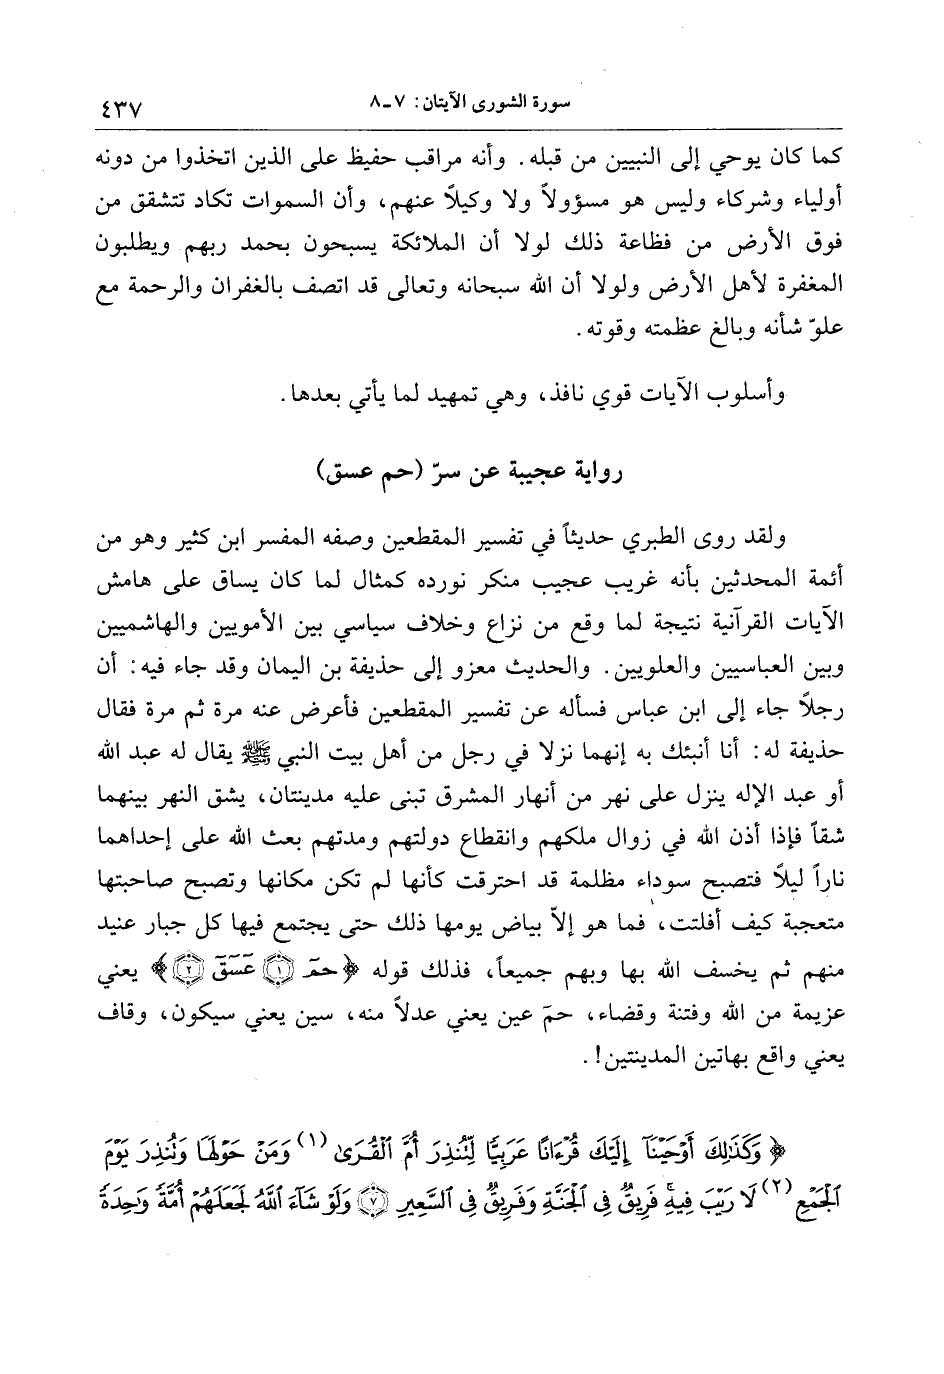 سورة الشورى الآيتان: ٧ـ٨
٤٣٧
كما كان يوحي إلى النبيين من قبله. وأنه مراقب حفيظ على الذين اتخذوا من دونه
أولياء وشركاء وليس هو مسؤولاً ولا وكيلاً عنهم، وأن السموات تكاد تتشقق من
فوق الأرض من فظاعة ذلك لولا أن الملائكة يسبحون بحمد ربهم ويطلبون
المغفرة لأهل الأرض ولولا أن الله سبحانه وتعالى قد اتصف بالغفران والرحمة مع
علوّ شأنه وبالغ عظمته وقوته.
وأسلوب الآيات قوي نافذ، وهي تمهيد لما يأتي بعدها.
رواية عجيبة عن سرّ (حم عسق)
ولقد روى الطبري حديثاً في تفسير المقطعين وصفه المفسر ابن كثير وهو من
أئمة المحدثين بأنه غريب عجيب منكر نورده كمثال لما كان يساق على هامش
الآيات القرآنية نتيجة لما وقع من نزاع وخلاف سياسي بين الأمويين والهاشميين
وبين العباسيين والعلويين. والحديث معزو إلى حذيفة بن اليمان وقد جاء فيه: أن
رجلاً جاء إلى ابن عباس فسأله عن تفسير المقطعين فأعرض عنه مرة ثم مرة فقال
حذيفة له: أنا أنبئك به إنهما نزلا في رجل من أهل بيت النبي ﷺ يقال له عبد الله
أو عبد الإله ينزل على نهر من أنهار المشرق تبنى عليه مدينتان، يشق النهر بينهما
شقاً فإذا أذن الله في زوال ملكهم وانقطاع دولتهم ومدتهم بعث الله على إحداهما
ناراً ليلاً فتصبح سوداء مظلمة قد احترقت كأنها لم تكن مكانها وتصبح صاحبتها
متعجبة كيف أفلتت، فما هو إلاّ بياض يومها ذلك حتى يجتمع فيها كل جبار عنيد
منهم ثم يخسف الله بها وبهم جميعاً، فذلك قوله ﴿حمٓ ١ عٓسٓقٓ ٢﴾ يعني
عزيمة من الله وفتنة وقضاء، حمٓ عين يعني عدلاً منه، سين يعني سيكون، وقاف
يعني واقع بهاتين المدينتين!.
﴿ وَكَذَٰلِكَ أَوۡحَيۡنَآ إِلَيۡكَ قُرۡءَانًا عَرَبِيّٗا لِّتُنذِرَ أُمَّ ٱلۡقُرَىٰ (١) وَمَنۡ حَوۡلَهَا وَتُنذِرَ يَوۡمَ
ٱلۡجَمۡعِ (٢) لَا رَيۡبَ فِيهِۚ فَرِيقٞ فِي ٱلۡجَنَّةِ وَفَرِيقٞ فِي ٱلسَّعِيرِ ٧ وَلَوۡ شَآءَ ٱللَّهُ لَجَعَلَهُمۡ أُمَّةٗ وَٰحِدَةٗ